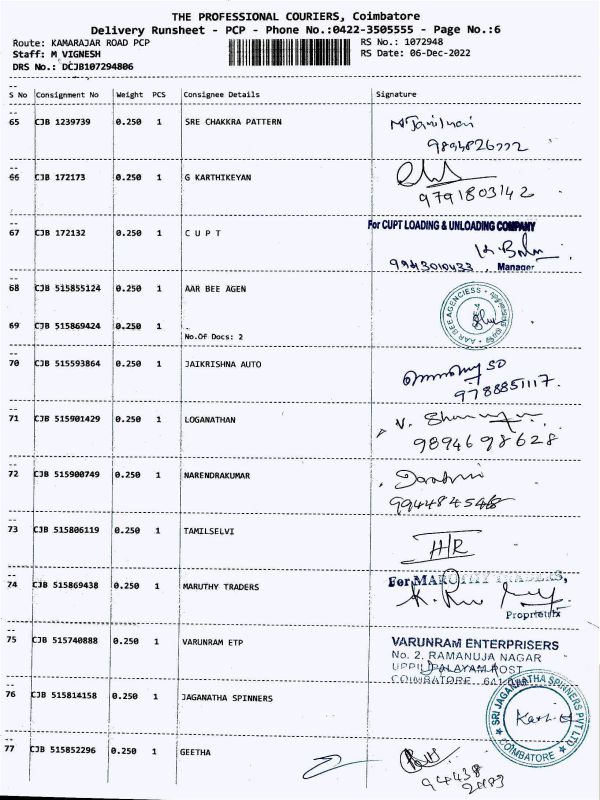 THE PROFESSIONAL COURIERS, Coimbatore
Delivery Runsheet - PCP - Phone No.:0422-3505555 - Page No.:6
Route: KAMARAJAR ROAD PCP
RS No.: 1072948
Staff: M VIGNESH
RS Date: 06-Dec-2022
DRS No.: DCJB107294806
S No Consignment No Weight PCS Consignee Details Signature
65 CJB 1239739 0.250 1 SRE CHAKKRA PATTERN
66 CJB 172173 0.250 1 G KARTHIKEYAN
9791803142
For CUPT LOADING & UNLOADING COMPANY
67 CJB 172132 0.250 1 C U P T
9943010433 Manager
68 CJB 515855124 0.250 1 AAR BEE AGEN
AAR BEE AGENCIESS
69 CJB 515869424 0.250 1
No.Of Docs: 2
70 CJB 515593864 0.250 1 JAIKRISHNA AUTO
9788851117.
71 CJB 515901429 0.250 1 LOGANATHAN
9894698628
72 CJB 515900749 0.250 1 NARENDRAKUMAR
73 CJB 515806119 0.250 1 TAMILSELVI
H/R
74 CJB 515869438 0.250 1 MARUTHY TRADERS
For MARUTHY TRADERS,
Proprietrix
75 CJB 515740888 0.250 1 VARUNRAM ETP
VARUNRAM ENTERPRISERS
No. 2, RAMANUJA NAGAR
UPPILIPALAYAM POST
COIMBATORE
76 CJB 515814158 0.250 1 JAGANATHA SPINNERS
SRI JAGANATHA SPINNERS PVT LTD
COIMBATORE
77 CJB 515852296 0.250 1 GEETHA
94438